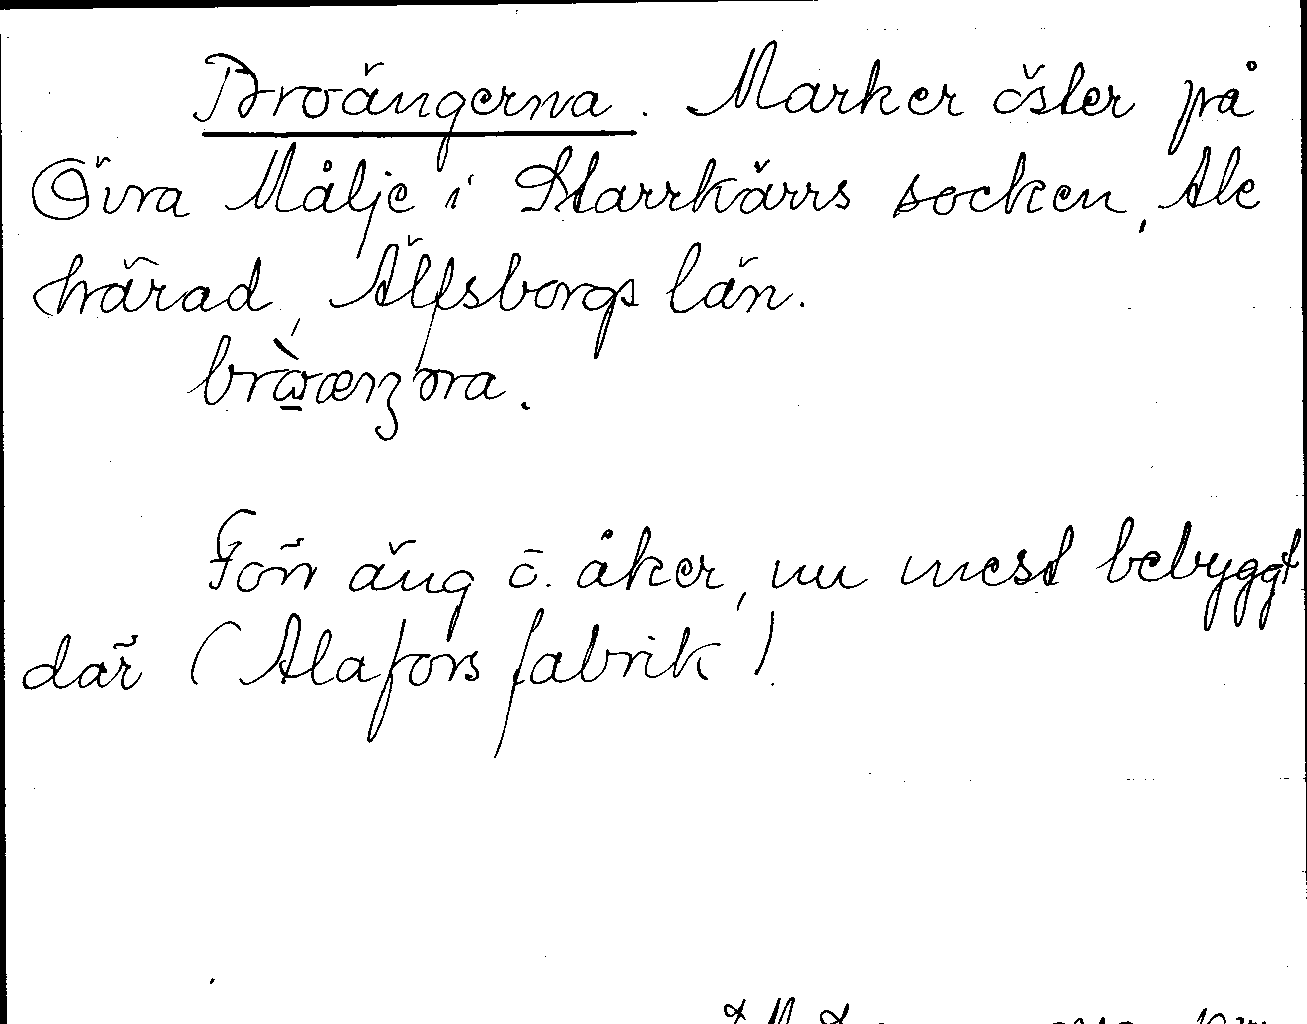 Broängerna. Marker öster på
Övra Målje i Starrkärrs socken, Ale
härad, Älfsborgs län.
Förr äng o. åker, nu mest bebyggt
där (Alafors fabrik).